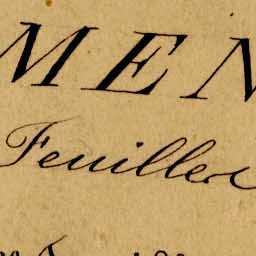 MEN
Feuilles